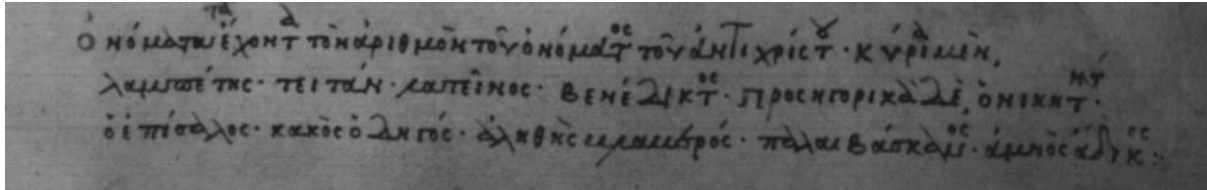 Ὀνόματα τὰ ἔχοντα τὸν ἀριθμὸν τοῦ ὀνόματος τοῦ ἀντιχρίστου· κύρια μὲν,
λαμπέτης· τειτάν· λατεῖνος· βενέδικτος· προσηγορικὰ δὲ, ὁ νικητής·
ὁ ἐπίσαλος· κακὸς ὁδηγός· ἀληθὴς βλαβερός· πάλαι βάσκανος· ἀμνὸς ἄδικος: